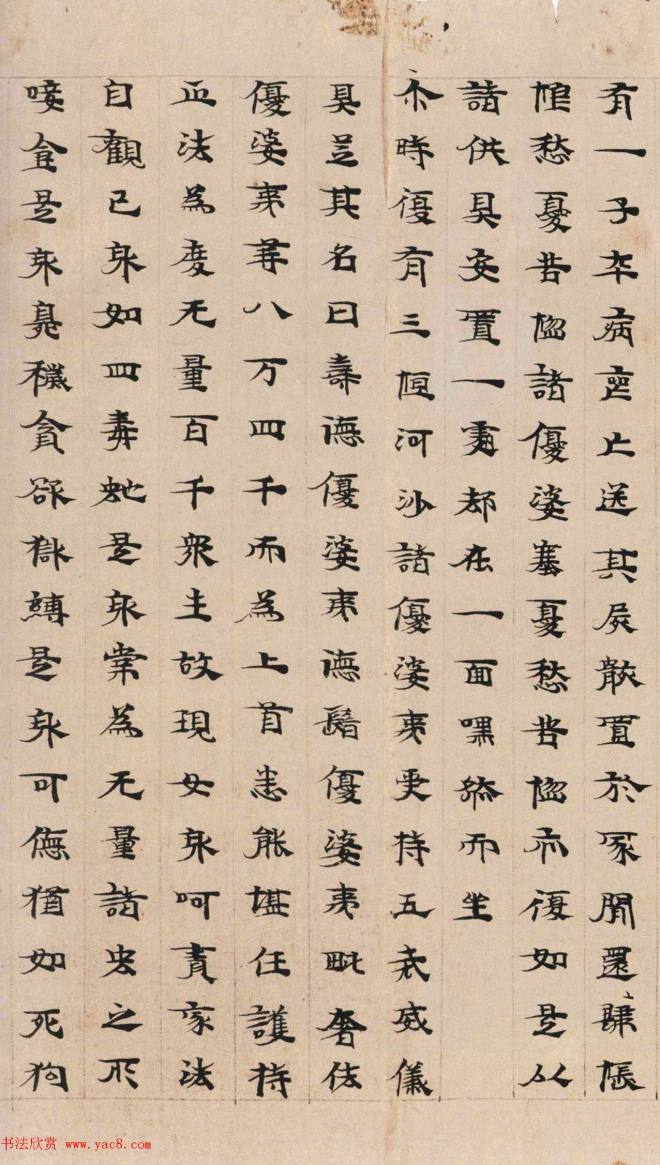 有一子卒病喪亡送其屍骸置於冢間還歸悵
恨愁憂苦惱諸優婆塞憂愁苦惱亦復如是以
諸供具安置一處却在一面嘿然而坐
尒時復有三恒河沙諸優婆夷受持五戒威儀
具足其名曰壽德優婆夷德鬘優婆夷毗奢佉
優婆夷等八万四千而為上首悉能堪任護持
正法為度无量百千衆生故現女身呵責家法
自觀己身如四毒虵是身常為无量諸虫之所
唼食是身臭穢貪欲獄縛是身可惡猶如死狗
书法欣赏 www.yac8.com